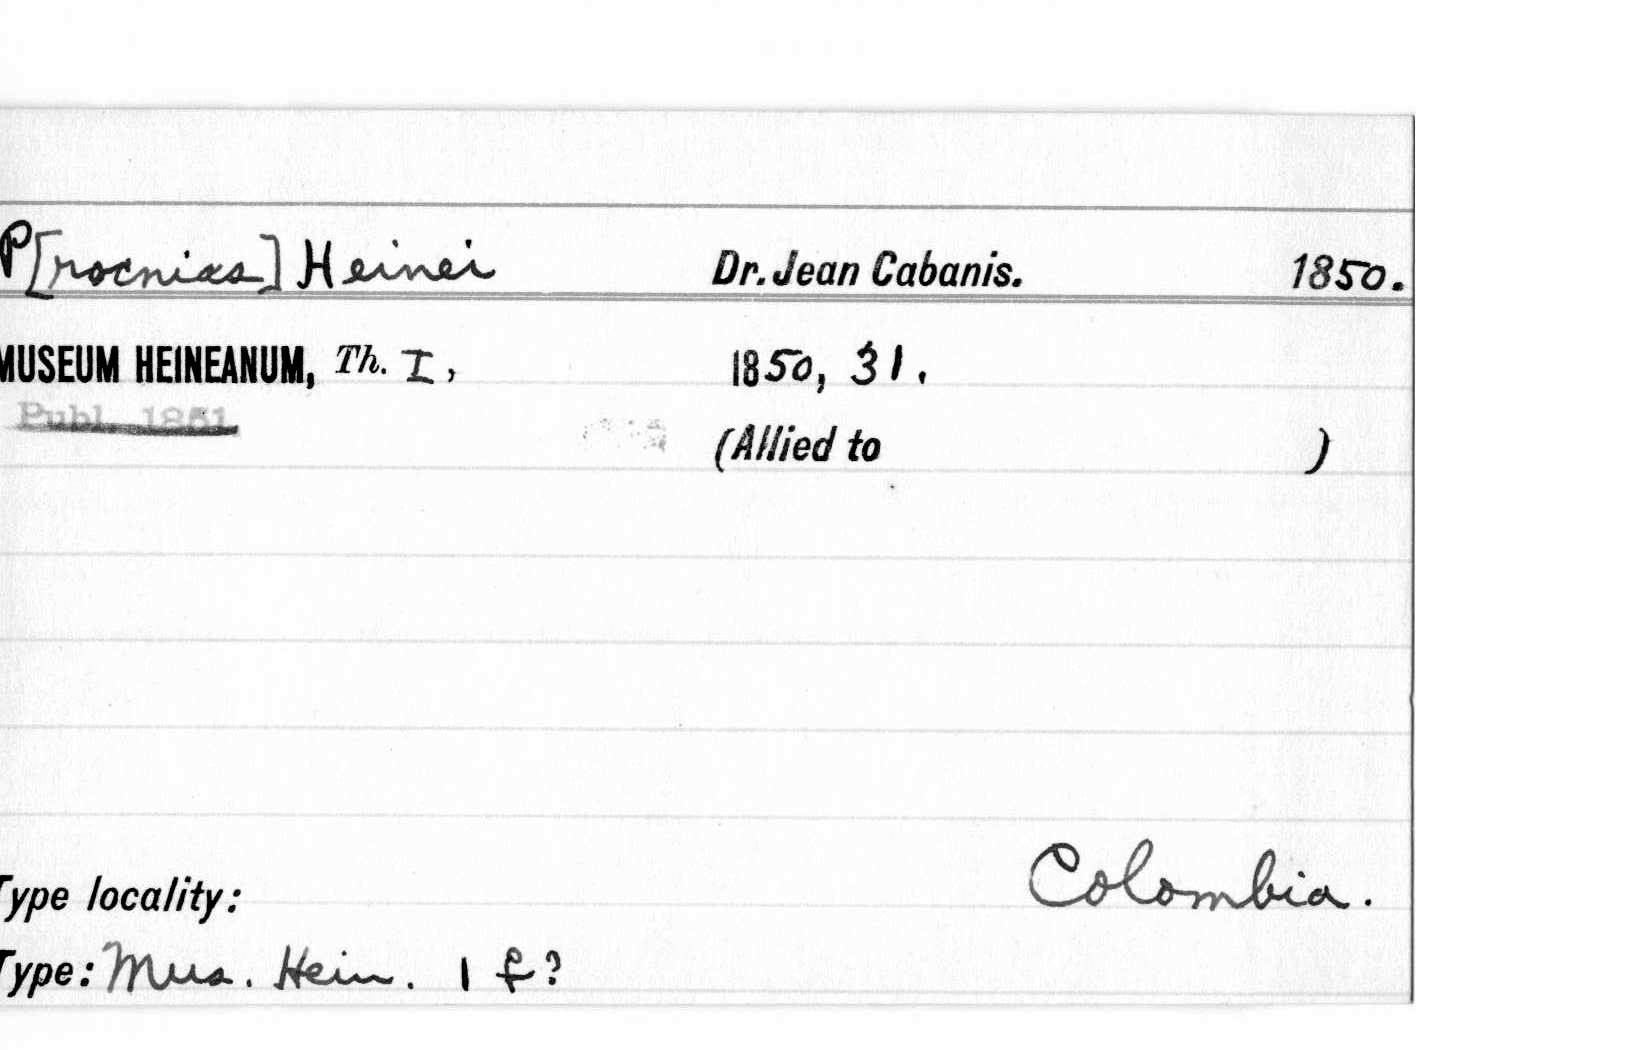 P[rocnias] Heinei Dr. Jean Cabanis. 1850.
MUSEUM HEINEANUM, Th. I, 1850, 31.
Publ. 1851
(Allied to )
Type locality: Colombia.
Type: Mus. Hein. 1 ♀?